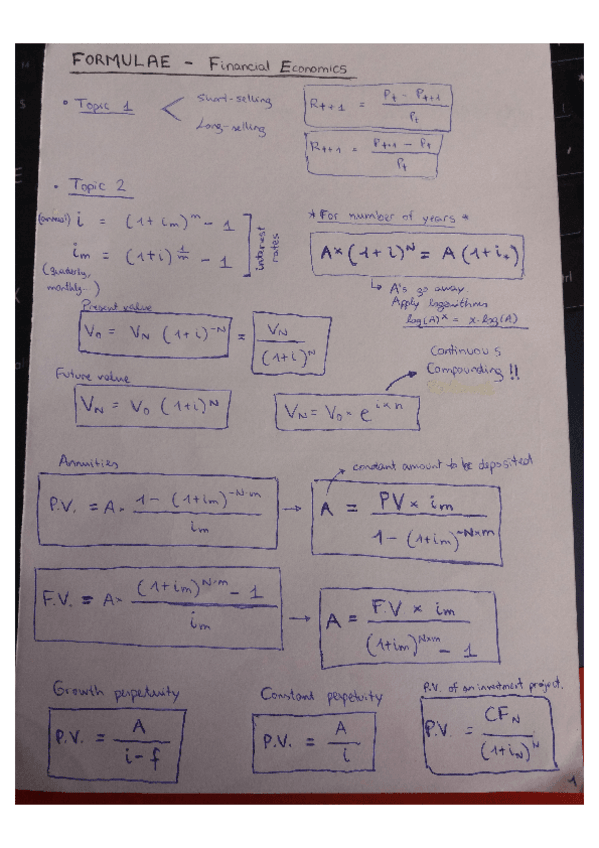 FORMULAE - Financial Economics
• Topic 1 < Short-selling
Long-selling
R t+1 = (Pt - Pt+1) / Pt
R t+1 = (Pt+1 - Pt) / Pt
• Topic 2
(annual) i = (1+im)^m - 1
im = (1+i)^(1/m) - 1
(quarterly, monthly...)
interest rates
* For number of years *
A × (1+i)^N = A (1+i.)
↳ A's go away
Apply logarithms
log(A)^x = x·log(A)
Present value
V0 = VN (1+i)^-N = VN / (1+i)^N
Future value
VN = V0 (1+i)^N
VN = V0 = e^(i×n)
Continuous
Compounding !!
Annuities
constant amount to be deposited
P.V. = A· (1 - (1+im)^(-N·m)) / im → A = (PV × im) / (1 - (1+im)^(-N×m))
F.V. = A· ((1+im)^(N·m) - 1) / im → A = (F.V × im) / ((1+im)^(N×m) - 1)
Growth perpetuity
P.V. = A / (i - f)
Constant perpetuity
P.V. = A / i
P.V. of an investment project.
P.V. = CFN / (1+iN)^N
1